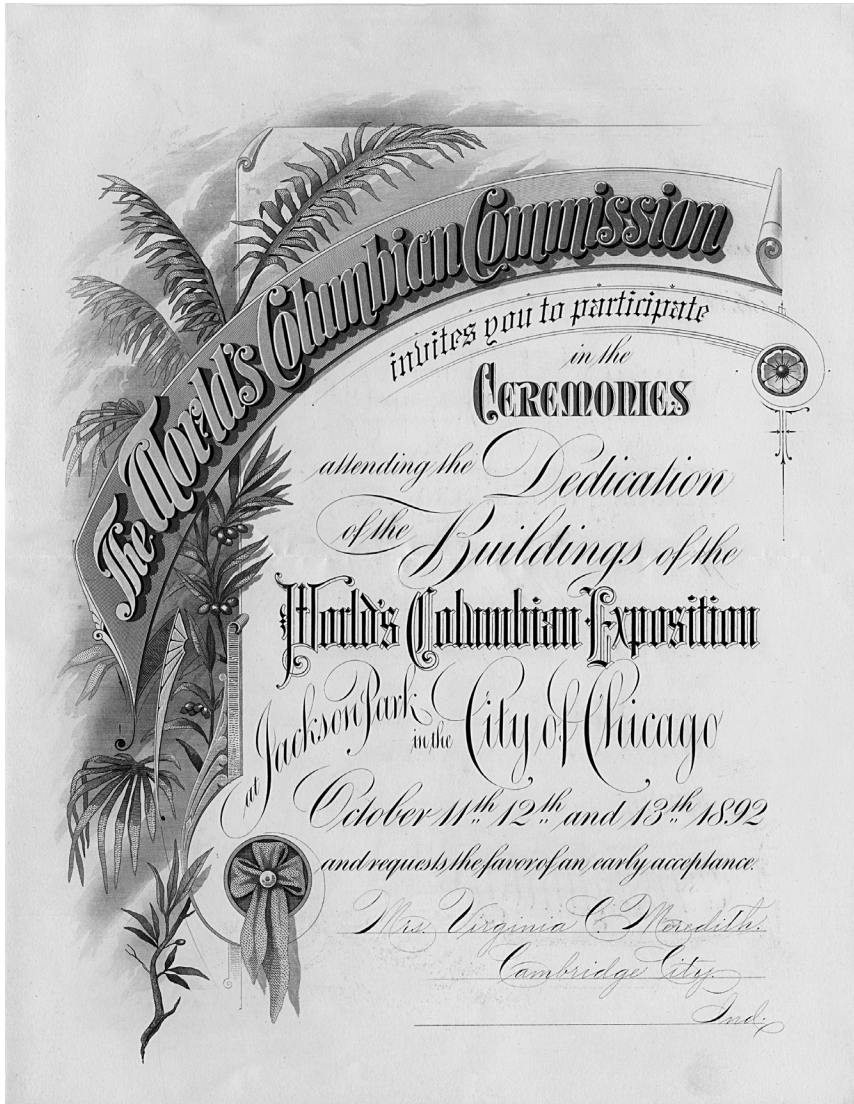 The World's Columbian Commission
invites you to participate
in the
CEREMONIES
attending the Dedication
of the Buildings of the
World's Columbian Exposition
at Jackson Park in the City of Chicago
October 11th 12th and 13th 1892
and requests the favor of an early acceptance.
Mrs. Virginia C. Meredith.
Cambridge City
Ind.